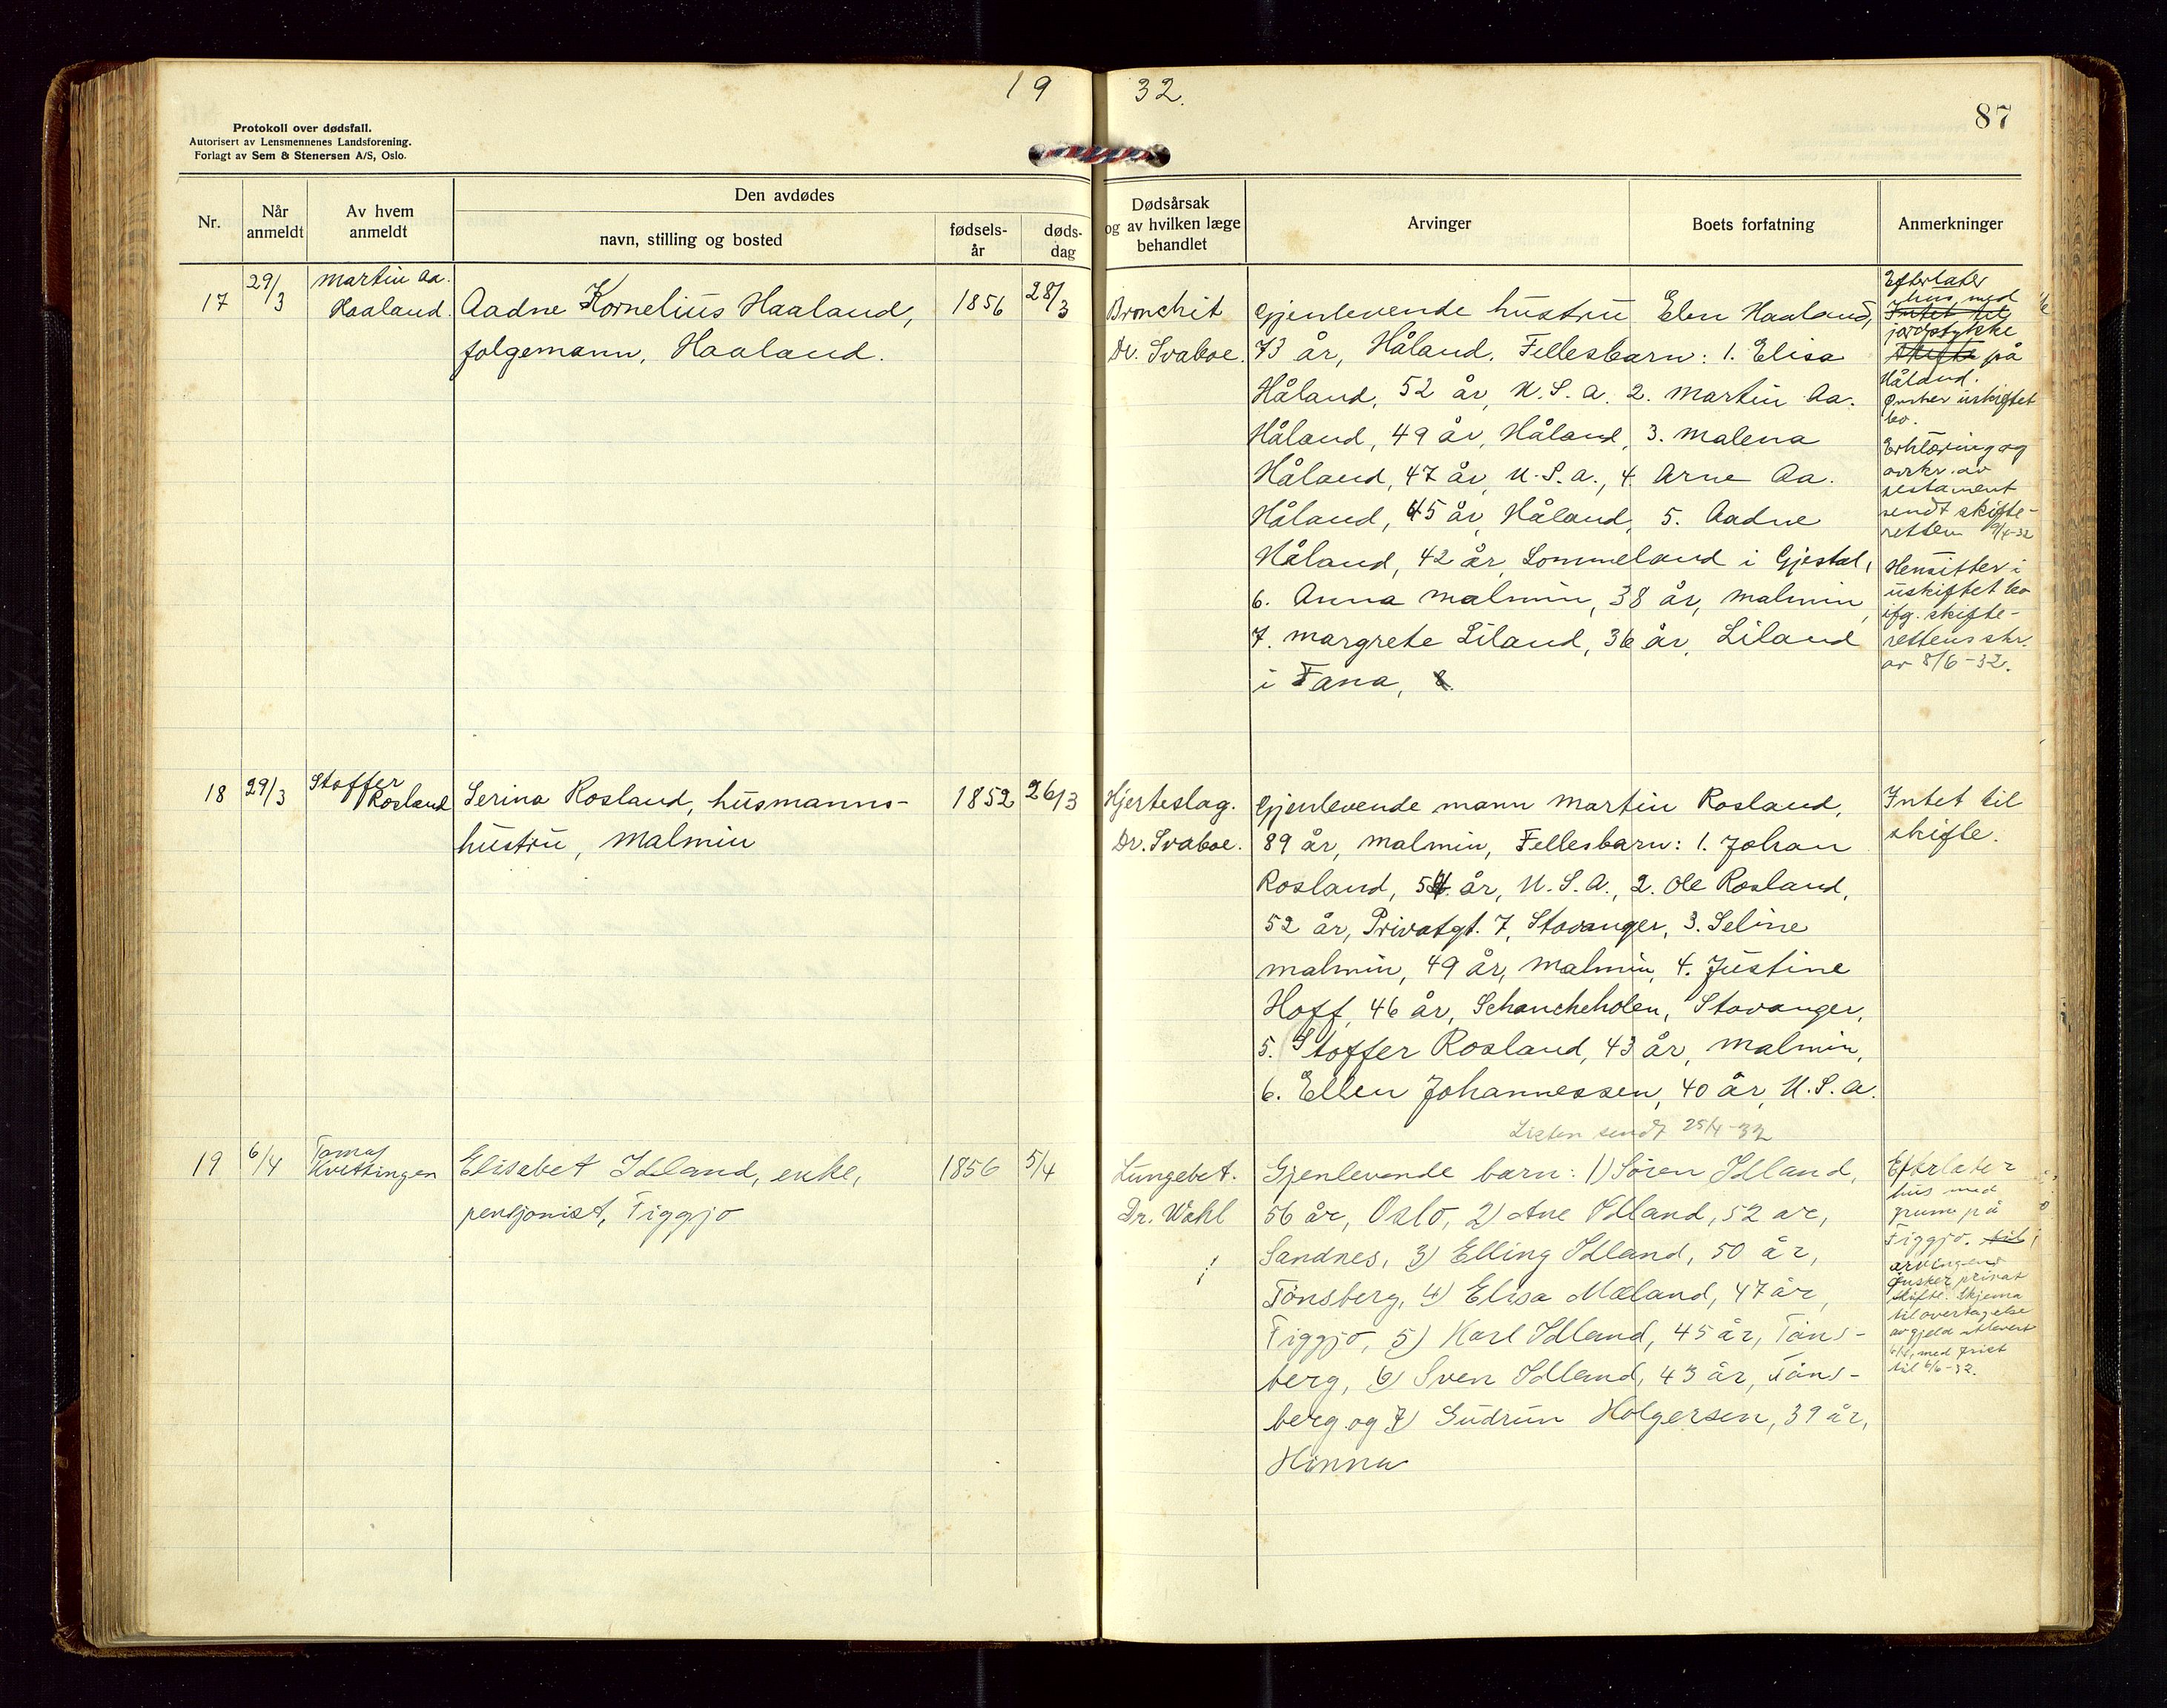 19 32.
87
Protokoll over dødsfall.
Autorisert av Lensmennenes Landsforening.
Forlagt av Sem & Stenersen A/S, Oslo.
Nr.
Når anmeldt
Av hvem anmeldt
Den avdødes
navn, stilling og bosted
fødsels-år
døds-dag
Dødsårsak
og av hvilken læge
behandlet
Arvinger
Boets forfatning
Anmerkninger
17
29/3
Martin Aa.
Haaland.
Aadne Kornelius Haaland,
folgemann, Haaland.
1856
28/3
Bronchit
Dr. Svaboe.
Gjenlevende hustru Elen Haaland,
73 år, Håland. Fellesbarn: 1. Elisa
Håland, 52 år, U.S.A. 2. Martin Aa.
Håland, 49 år, Håland, 3. Malena
Håland, 47 år, U.S.A., 4. Arne Aa.
Håland, 45 år, Håland, 5. Aadne
Håland, 42 år, Lommeland i Gjestal,
6. Anna Malmin, 38 år, Malmin,
7. Margrete Liland, 36 år, Liland
i Fana, 8.
Efterlater
hus med
Intet til
jordstykke
skifte på
Håland.
Ønsker uskiftet
bo.
Erklæring og
avskr. av
testament
sendt skifte-
retten 9/4-32
Hensitter i
uskiftet bo
ifg. skifte-
rettens skr.
av 8/6-32.
18
29/3
Stoffer
Rosland
Serina Rosland, husmanns-
hustru, Malmin
1852
26/3
Hjerteslag.
Dr. Svaboe.
Gjenlevende mann Martin Rosland,
89 år, Malmin, Fellesbarn: 1. Johan
Rosland, 54 år, U.S.A., 2. Ole Rosland,
52 år, Privatgt. 7, Stavanger, 3. Seline
Malmin, 49 år, Malmin, 4. Justine
Hoff, 46 år, Schancheholen, Stavanger,
5. Stoffer Rosland, 43 år, Malmin,
6. Ellen Johannessen, 40 år, U.S.A.
Listen sendt 25/4-32
Intet til
skifte.
19
6/4
Tomas
Kvettingen
Elisabet Idland, enke,
pensjonist, Figgjo
1856
5/4
Lungebet.
Dr. Wahl
Gjenlevende barn: 1) Sören Idland,
56 år, Oslo, 2) Ane Idland, 52 år,
Sandnes, 3) Elling Idland, 50 år,
Tönsberg, 4) Elisa Mæland, 47 år,
Figgjo, 5) Karl Idland, 45 år, Töns-
berg, 6) Sven Idland, 43 år, Töns-
berg og 7) Gudrun Holgersen, 39 år,
Hinna
Efterlater
hus med
grunn på
Figgjo. til
arvingene
ønsker privat
skifte. Skjema
til overtagelse
av gjeld utlevert
med frist
til 6/6-32.